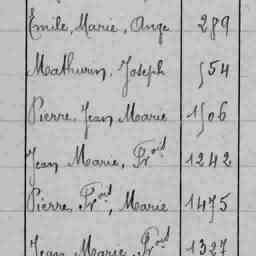 Emile, Marie, Ange 289
Mathurin, Joseph 554
Pierre, Jean Marie 1506
Jean Marie, Fr^ois 1242
Pierre, Fr^ois, Marie 1475
Jean Marie, Fr^ois 1327